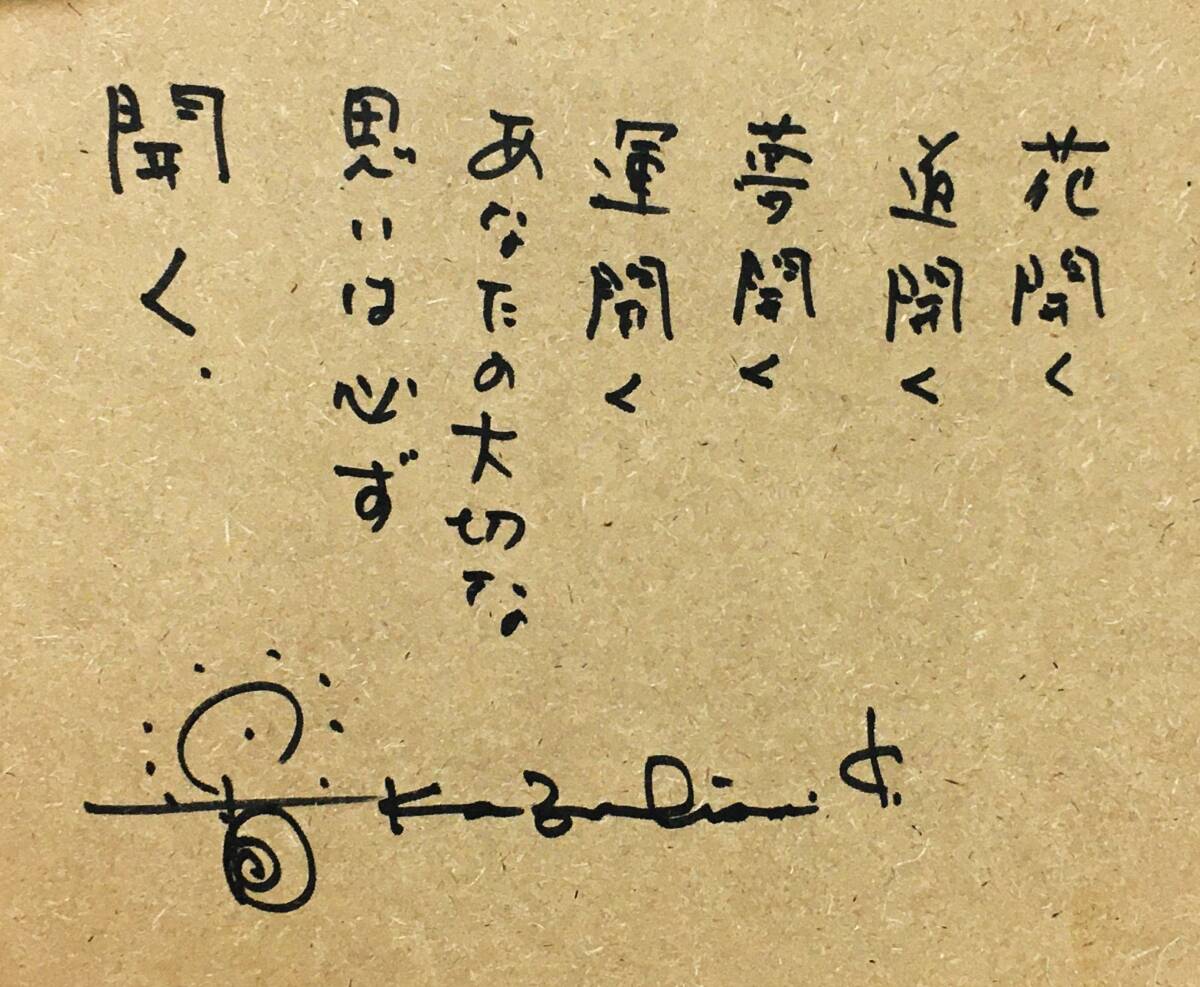 花開く
道開く
夢開く
運開く
あなたの大切な
思いは必ず
開く.